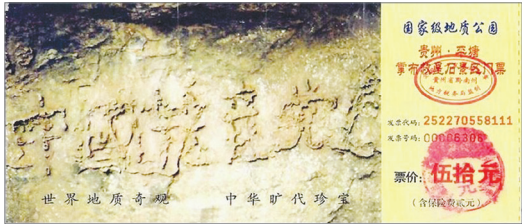 中国共产党
世界地质奇观 中华旷代珍宝
国家级地质公园
贵州·平塘
掌布救星石景区门票
贵州省黔南州
发票代码: 252270558111
发票号码: 00006306
票价: 伍拾元
(含保险费贰元)